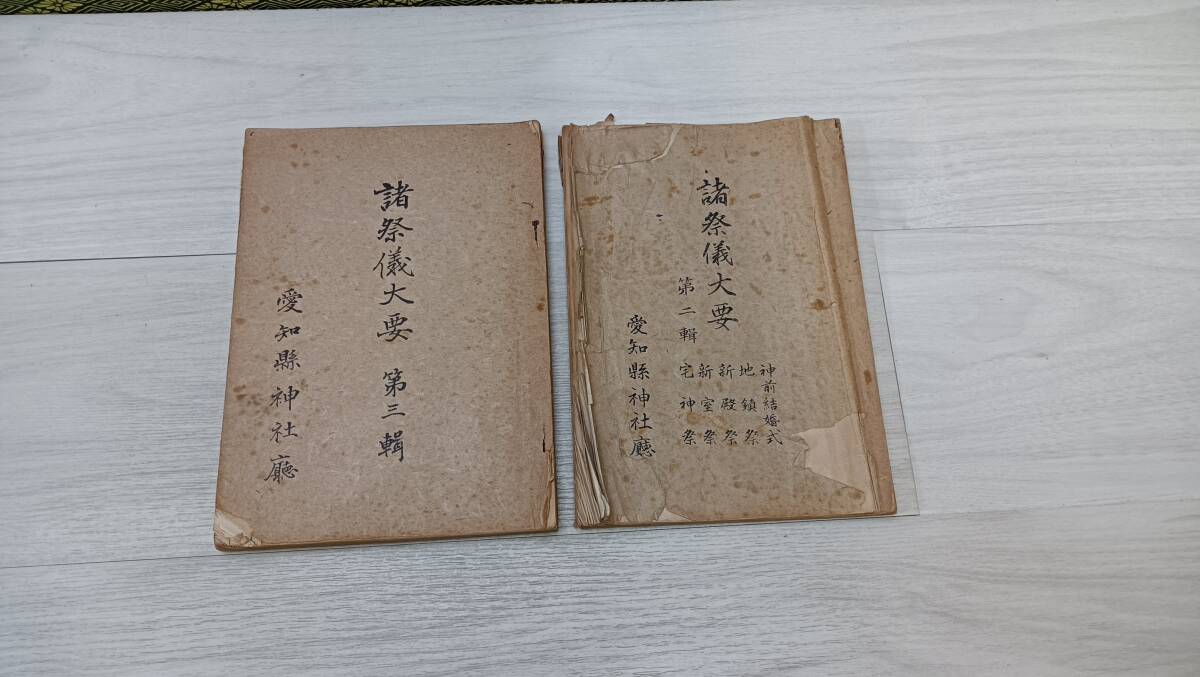 諸祭儀大要 第三輯
愛知縣神社廳
神前結婚式
地鎮祭
新殿祭
新室祭
宅神祭
諸祭儀大要
第二輯
愛知縣神社廳